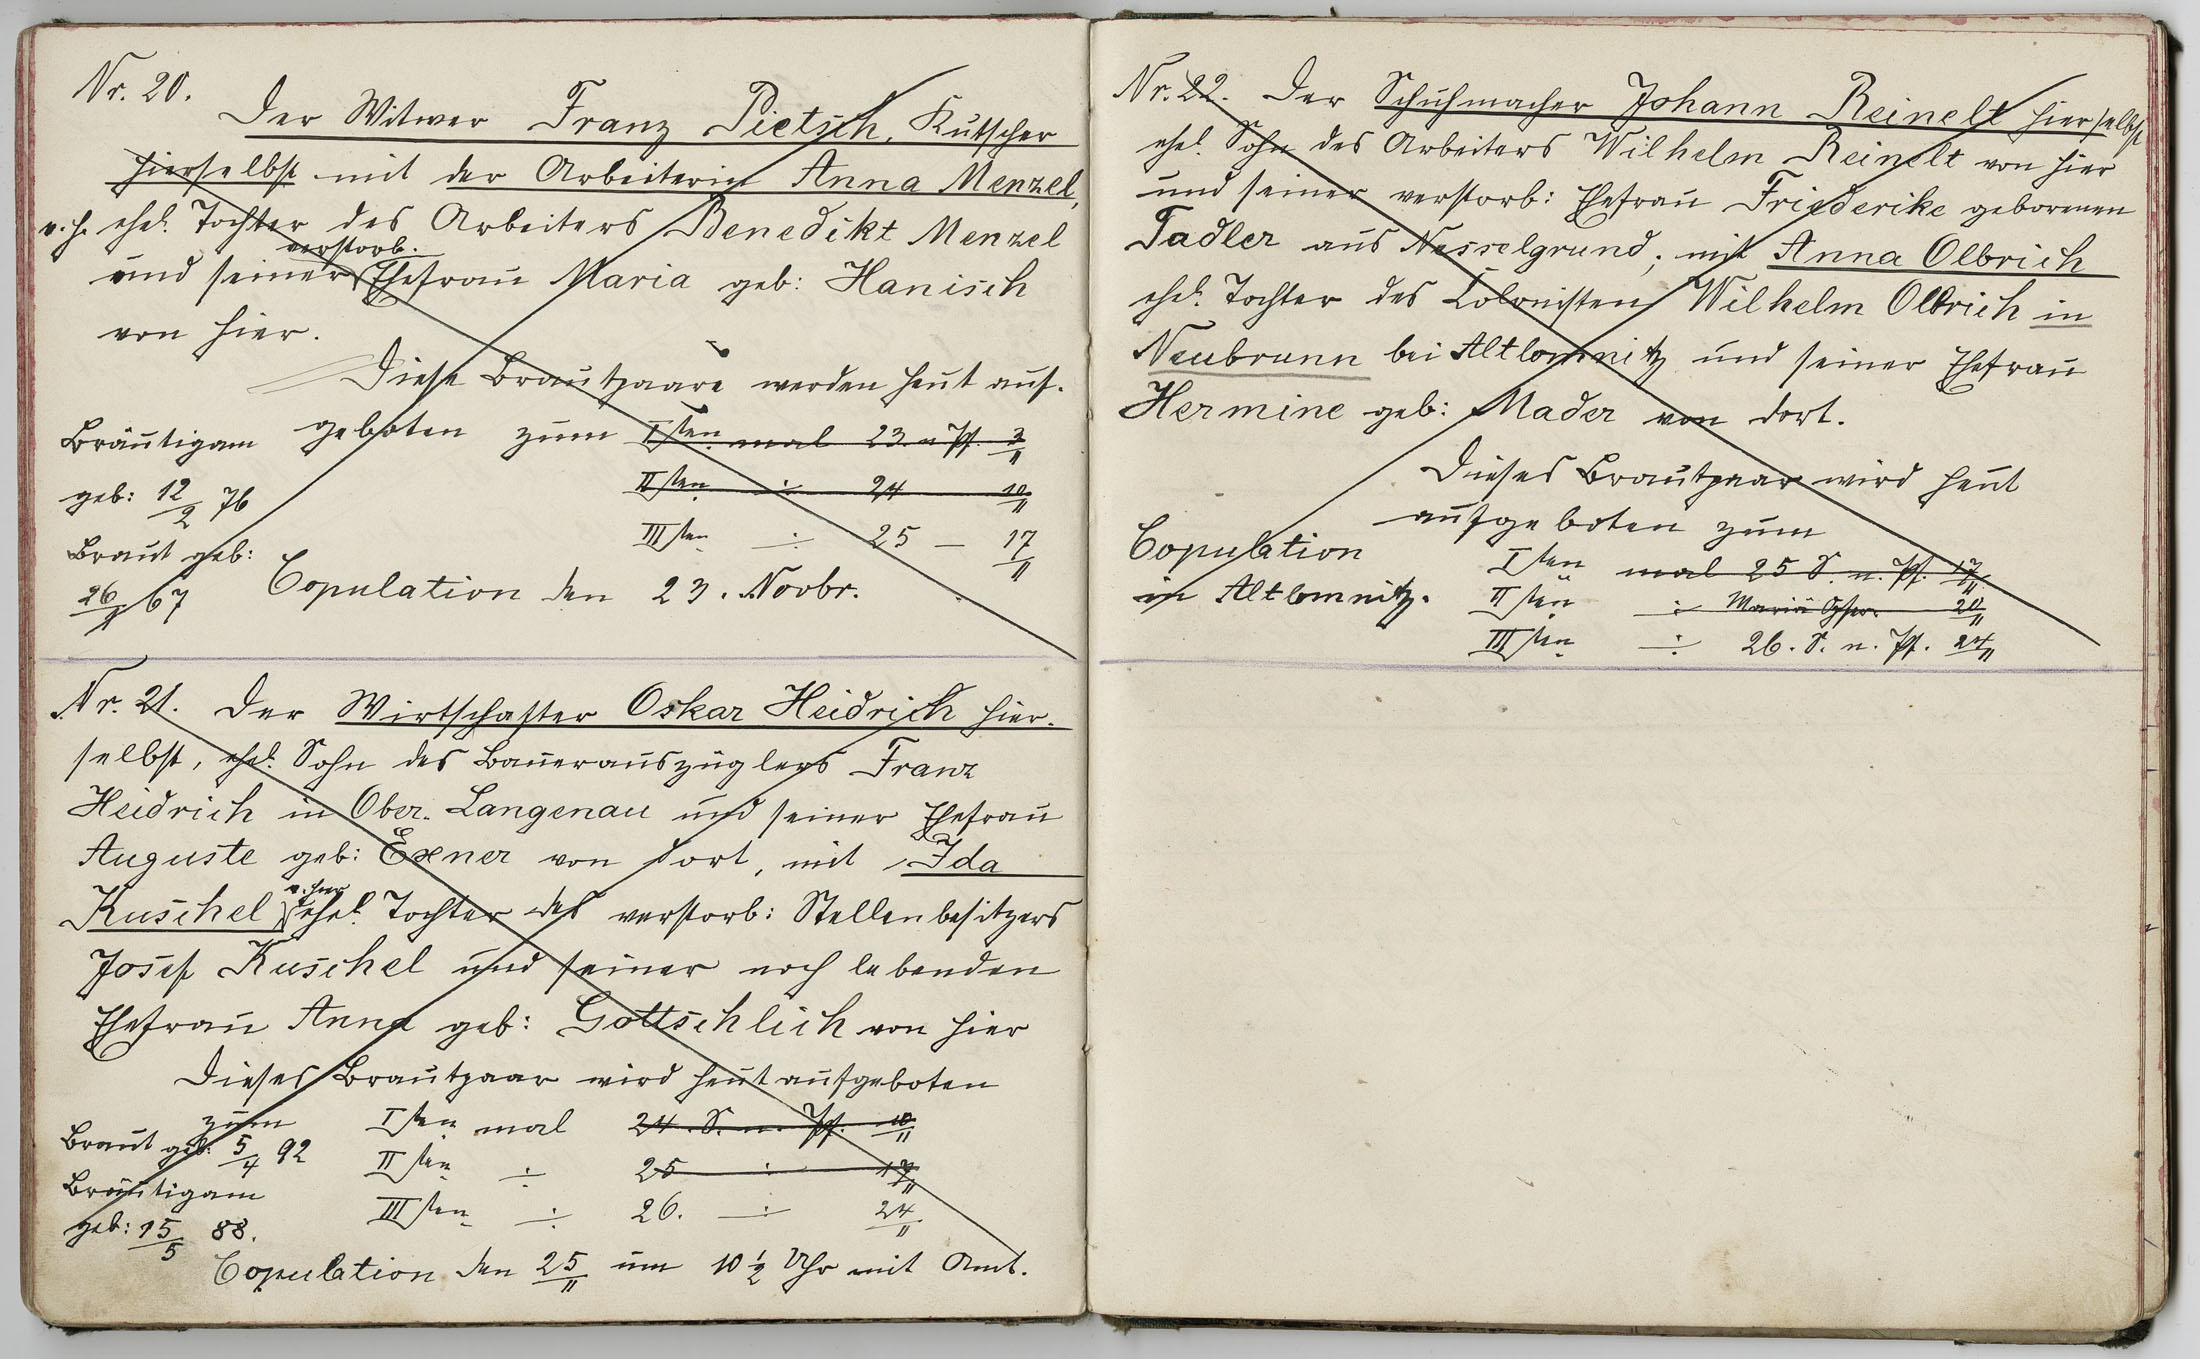 Nr. 20.
Der Witwer Franz Pietsch, Kutscher
hierselbst mit der Arbeiterin Anna Menzel,
v. h. ehel. Tochter des Arbeiters Benedikt Menzel
verstorb.
und seiner Ehefrau Maria geb: Hanisch
von hier.
Diese Brautpaare werden heut auf-
geboten zum Isten mal 23. n. Pf. 3/11
Bräutigam
geb: 12/2 76
IIten ÷ 24 10/11
IIIten ÷ 25 — 17/11
Braut geb:
26/7 67
Copulation den 23. Novbr.
Nr. 21. Der Wirtschafter Oskar Heidrich hier-
selbst, ehel. Sohn des Bauerauszüglers Franz
Heidrich in Ober-Langenau und seiner Ehefrau
Auguste geb: Exner von dort, mit Ida
v. hier
Kuschel ehel. Tochter des verstorb: Stellenbesitzers
Josef Kuschel und seiner noch lebenden
Ehefrau Anna geb: Gottschlich von hier
Dieses Brautpaar wird heut aufgeboten
zum Isten mal 24. S. n. Pf. 10/11
Braut geb: 5/4 92
IIten ÷ 25 ÷ 17/11
Bräutigam
geb: 15/5 88.
IIIten ÷ 26. ÷ 24/11
Copulation den 25/11 um 10 1/2 Uhr mit Amt.
Nr. 22. Der Schuhmacher Johann Reinelt hierselbst
ehel. Sohn des Arbeiters Wilhelm Reinelt von hier
und seiner verstorb: Ehefrau Friederike geborenen
Tadler aus Nesselgrund; mit Anna Olbrich
ehel. Tochter des Colonisten Wilhelm Olbrich in
Neubrunn bei Altlomnitz und seiner Ehefrau
Hermine geb: Mader von dort.
Dieses Brautpaar wird heut
aufgeboten zum
Copulation
in Altlomnitz.
Isten mal 25 S. n. Pf. 17/11
IIten ÷ Mariä Opfer. 20/11
IIIten ÷ 26. S. n. Pf. 24/11